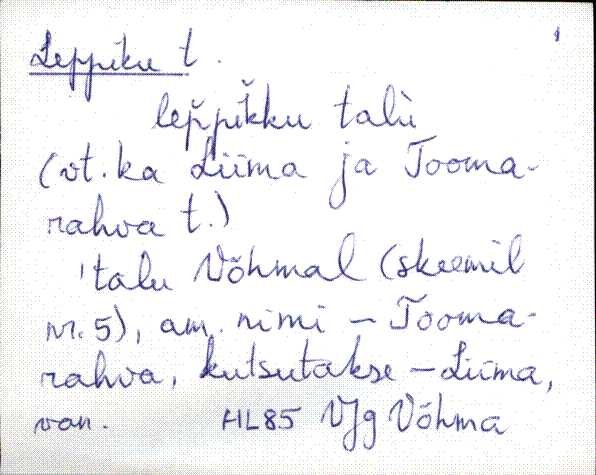 Leppiku t.
1
lep̆pik̆ku talù
(vt. ka Liima ja Tooma-
rahva t.)
'talu Võhmal (skeemil
nr. 5), am. nimi – Tooma-
rahva, kutsutakse – Liima,
van. HL85 VJg Võhma